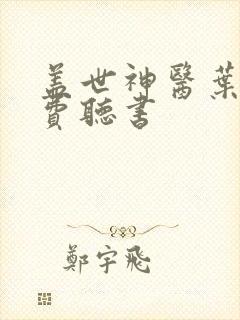 盖世神醫葉
費聽書
鄭宇飛